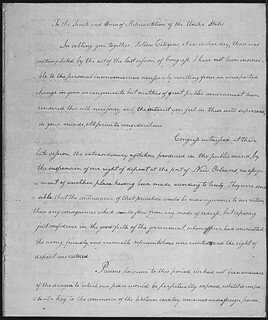 To the Senate and House of Representatives of the United States
In calling you together, Fellow Citizens, at an earlier day than was
contemplated by the act of the last session of Congress, I have not been insensi-
ble to the personal inconveniences necessarily resulting from an unexpected
change in your arrangements. but matters of great public concernment have
rendered this call necessary, and the interest you feel in these will supersede
in your minds all private considerations.
Congress witnessed, at their
late session, the extraordinary agitation produced in the public mind by
the suspension of our right of deposit at the port of New Orleans, no assign-
ment of another place having been made according to treaty. They were sen-
sible that the continuance of that privation would be more injurious to our nation
than any consequences which could flow from any mode of redress. but reposing
just confidence in the good faith of the government whose officer had committed
the wrong, friendly and reasonable representations were resorted to, and the right of
deposit was restored.
Previous however to this period, we had not been unaware
of the danger to which our peace would be perpetually exposed whilst so impor-
tant a key to the commerce of the Western country remained under foreign power.